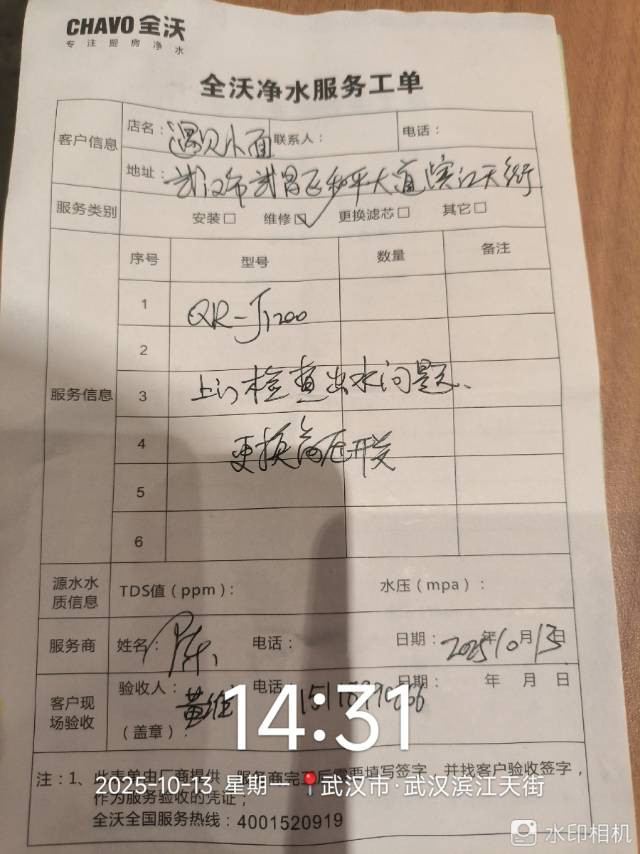 CHAVO 全沃
专注厨房净水
全沃净水服务工单
客户信息 店名：遇见小面 联系人： 电话：
地址：武汉市武昌区和平大道滨江天街
服务类别 安装□ 维修☑ 更换滤芯□ 其它□
服务信息 序号 型号 数量 备注
1 QR-J1200
2
3 上门检查出水问题、
4 更换高压开关
5
6
源水水质信息 TDS值（ppm）： 水压（mpa）：
服务商 姓名：陈 电话： 日期：2025年10月13日
客户现场验收 验收人：黄维 电话 日期： 年 月 日
（盖章）：
14:31
注：1、此表单由厂商提供 服务商完 后需要填写签字，并找客户验收签字，
作为服务验收的凭证；
2025-10-13 星期一 武汉市·武汉滨江天街
全沃全国服务热线：4001520919
水印相机